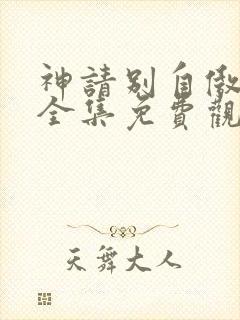 神請別自傲
全集免費觀
天舞大人